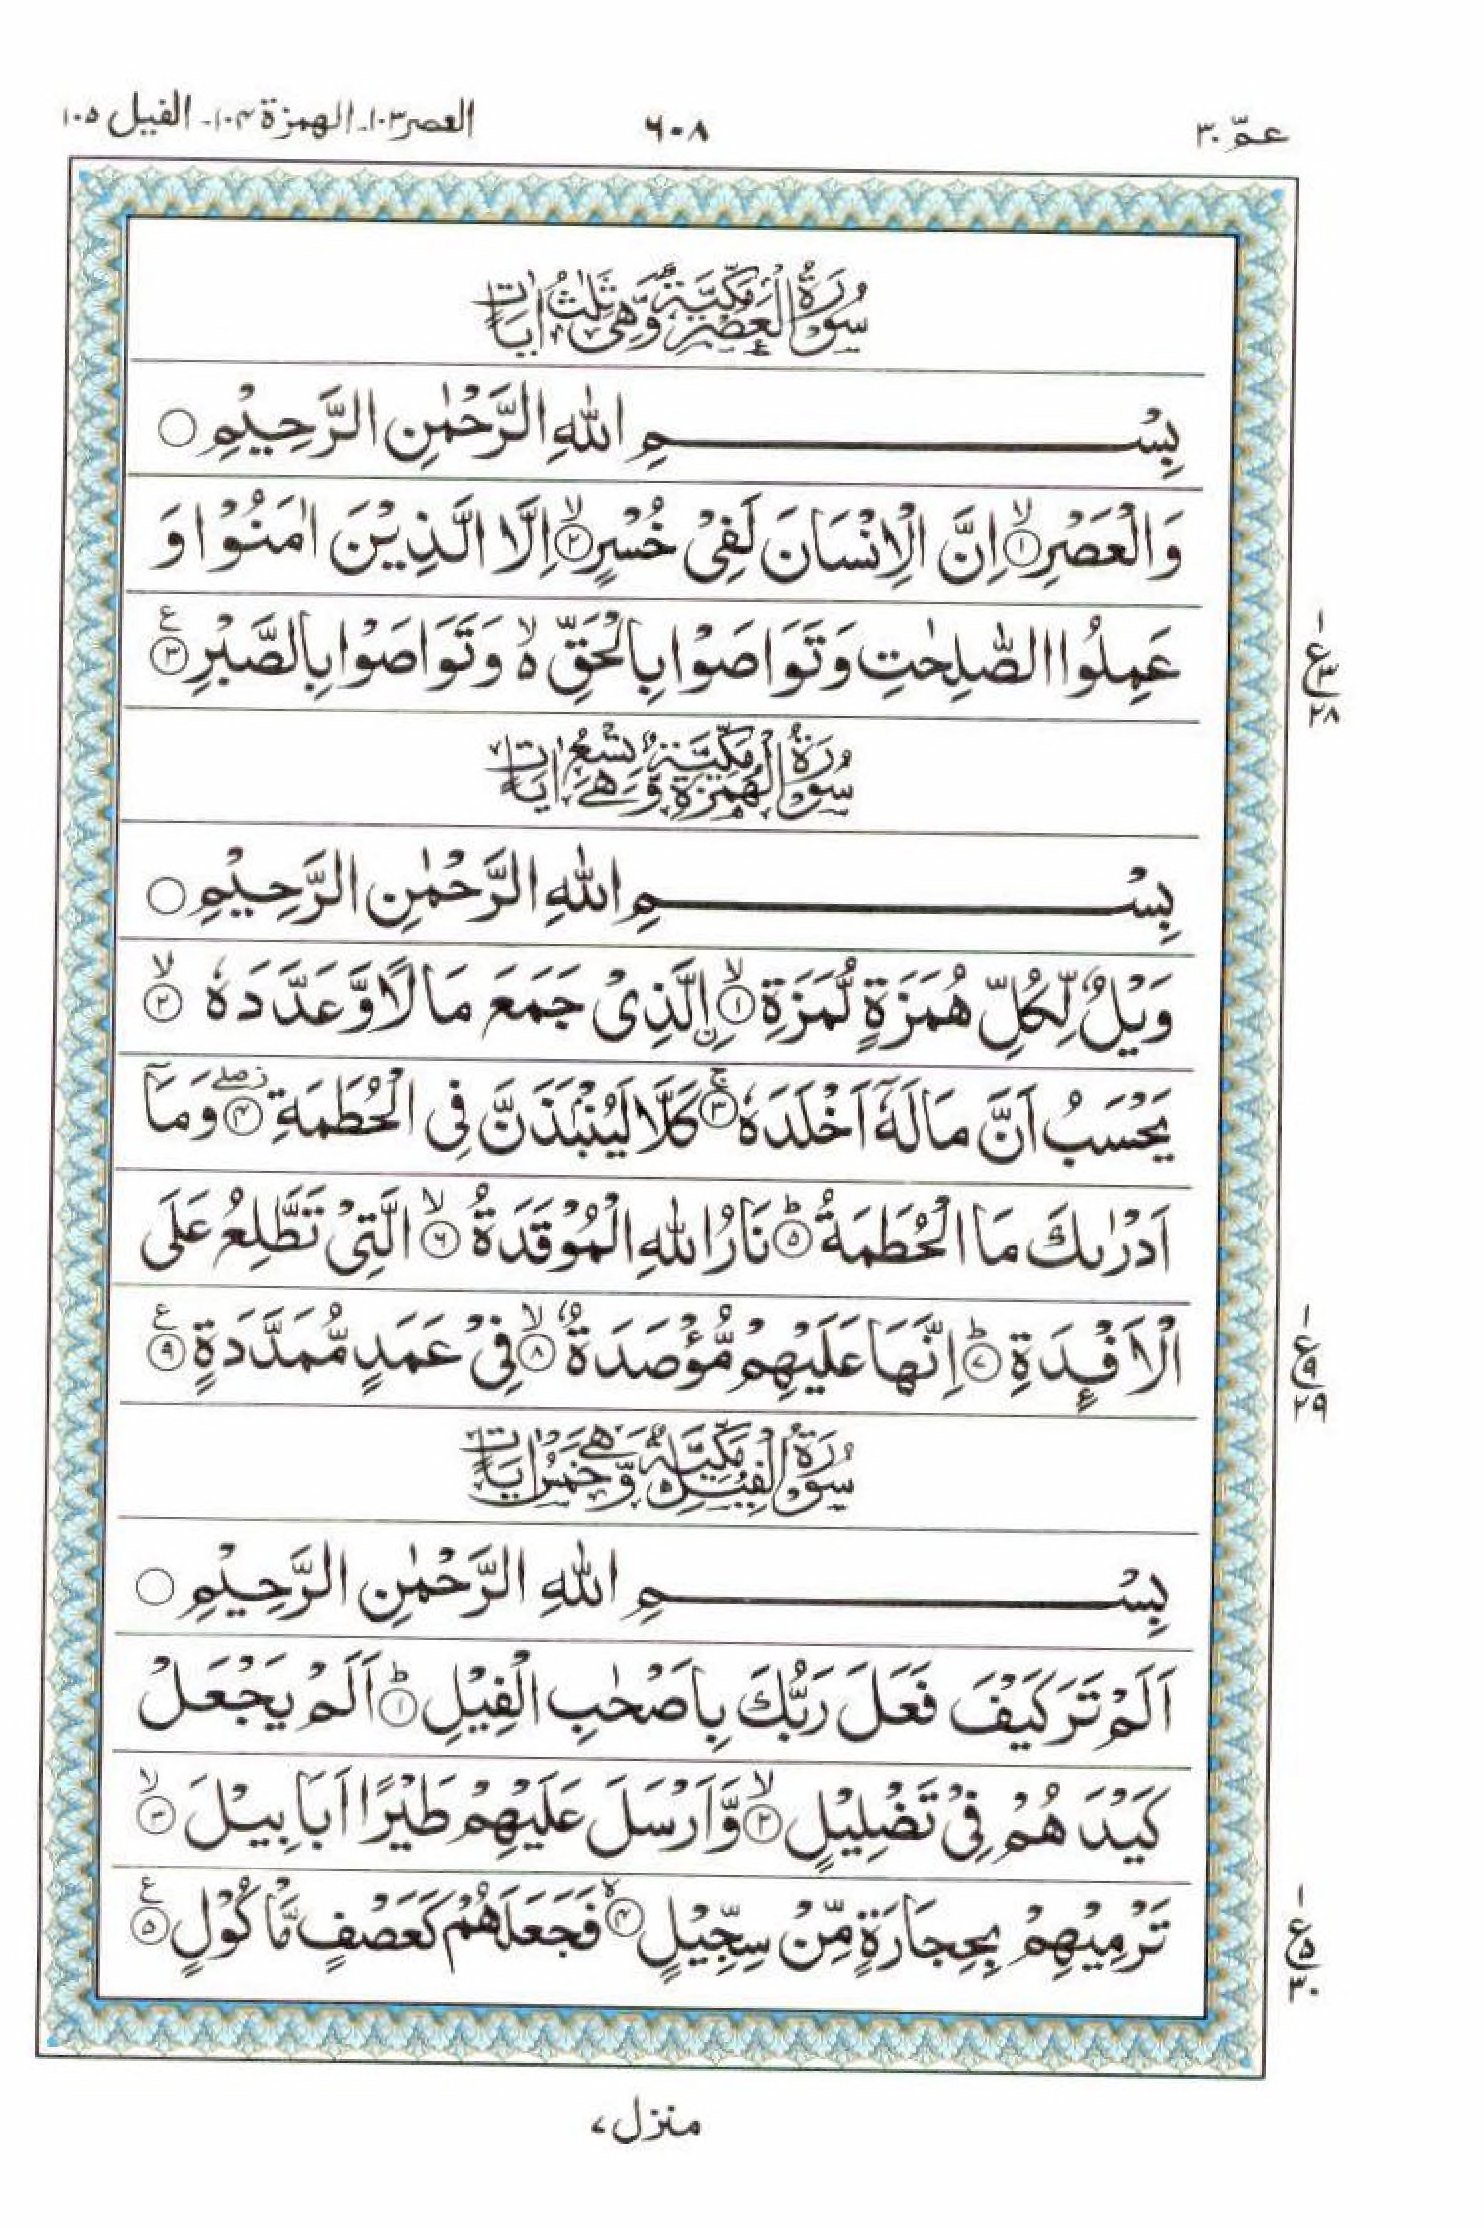 عمّ ٣٠
٦٠٨
العصر ١٠٣۔ الهمزة ١٠۴۔ الفيل ١٠٥
سُوْرَةُ الْعَصْرِ مَكِّيَّةٌ وَّهِيَ ثَلٰثُ اٰيَاتٍ
بِسْمِ اللّٰهِ الرَّحْمٰنِ الرَّحِيْمِ ○
وَالْعَصْرِ ۙ﴿١﴾ اِنَّ الْاِنْسَانَ لَفِيْ خُسْرٍ ۙ﴿٢﴾ اِلَّا الَّذِيْنَ اٰمَنُوْا وَ
عَمِلُوا الصّٰلِحٰتِ وَتَوَاصَوْا بِالْحَقِّ ۙ۬ وَتَوَاصَوْا بِالصَّبْرِ ﴿٣﴾ ع
ع ١ ٣ ٢٨
سُوْرَةُ الْهُمَزَةِ مَكِّيَّةٌ وَّهِيَ تِسْعُ اٰيَاتٍ
بِسْمِ اللّٰهِ الرَّحْمٰنِ الرَّحِيْمِ ○
وَيْلٌ لِّكُلِّ هُمَزَةٍ لُّمَزَةٍ ۙ﴿١﴾ ۨالَّذِيْ جَمَعَ مَالًا وَّعَدَّدَهٗ ۙ﴿٢﴾
يَحْسَبُ اَنَّ مَالَهٗۤ اَخْلَدَهٗ ۚ﴿٣﴾ كَلَّا لَيُنْۢبَذَنَّ فِي الْحُطَمَةِ ز صلے ﴿۴﴾ وَمَاۤ
اَدْرٰىكَ مَا الْحُطَمَةُ ؕ﴿٥﴾ نَارُ اللّٰهِ الْمُوْقَدَةُ ۙ﴿٦﴾ الَّتِيْ تَطَّلِعُ عَلَى
الْاَفْـِٕدَةِ ؕ﴿٧﴾ اِنَّهَا عَلَيْهِمْ مُّؤْصَدَةٌ ۙ﴿٨﴾ فِيْ عَمَدٍ مُّمَدَّدَةٍ ﴿٩﴾ ع
ع ١ ٩ ٢٩
سُوْرَةُ الْفِيْلِ مَكِّيَّةٌ وَّهِيَ خَمْسُ اٰيَاتٍ
بِسْمِ اللّٰهِ الرَّحْمٰنِ الرَّحِيْمِ ○
اَلَمْ تَرَ كَيْفَ فَعَلَ رَبُّكَ بِاَصْحٰبِ الْفِيْلِ ؕ﴿١﴾ اَلَمْ يَجْعَلْ
كَيْدَهُمْ فِيْ تَضْلِيْلٍ ۙ﴿٢﴾ وَّاَرْسَلَ عَلَيْهِمْ طَيْرًا اَبَابِيْلَ ۙ﴿٣﴾
تَرْمِيْهِمْ بِحِجَارَةٍ مِّنْ سِجِّيْلٍ ﴿۴﴾ فَجَعَلَهُمْ كَعَصْفٍ مَّاْكُوْلٍ ﴿٥﴾ ع
ع ١ ٥ ٣٠
منزل ٧